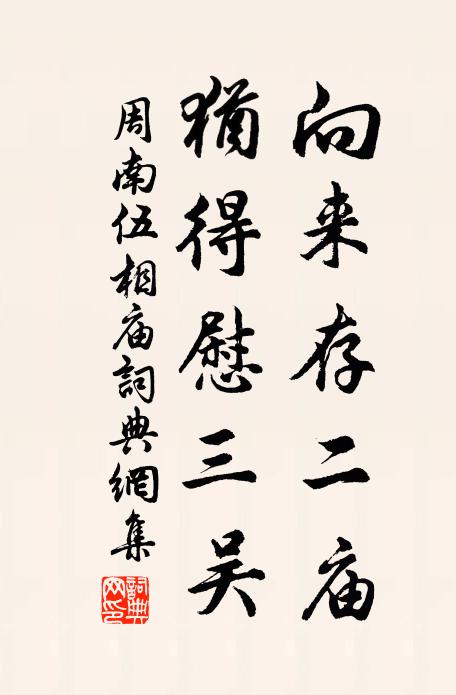 向来存二庙
猶得慰三吴
周南伍相庙詞典網集
詞典網印